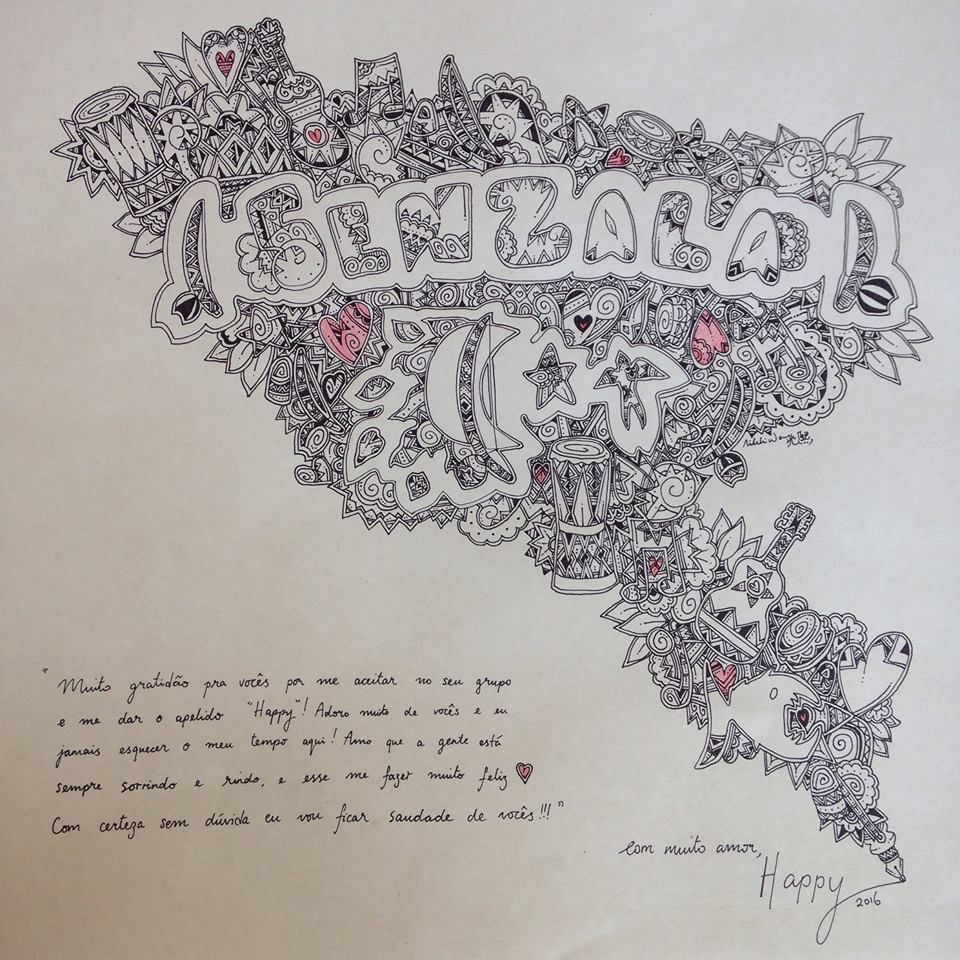 SENZALA
“Muito gratidão pra vocês por me aceitar no seu grupo
e me dar o apelido "Happy"! Adoro muito de vocês e eu
jamais esquecer o meu tempo aqui! Amo que a gente está
sempre sorrindo e rindo, e esse me fazer muito feliz ♡
Com certeza sem dúvida eu vou ficar saudade de vocês!!!”
Com muito amor,
Happy
2016